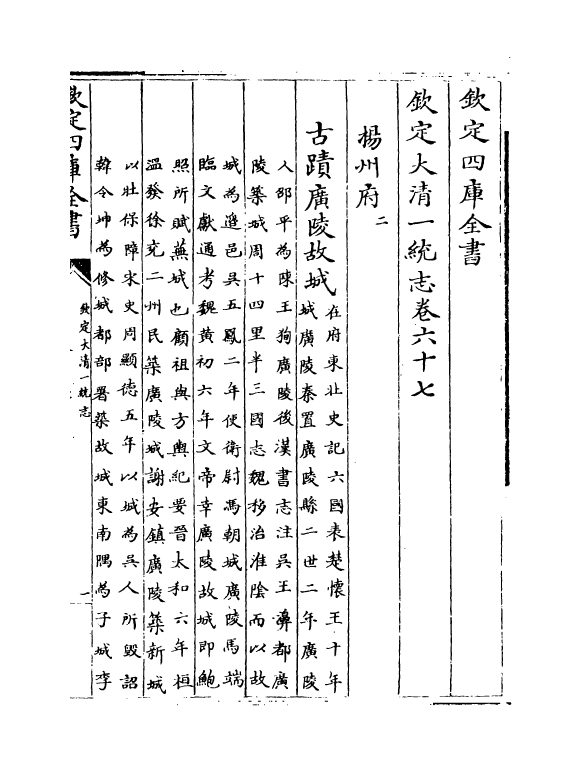 欽定四庫全書
欽定大清一統志卷六十七
楊州府二
古蹟廣陵故城
在府東北史記六國表楚懷王十年
城廣陵秦置廣陵縣二世二年廣陵
人邵平為陳王狥廣陵後漢書志注吳王濞都廣
陵築城周十四里半三國志魏移治淮陰而以故
城為邊邑吳五鳳二年使衛尉馮朝城廣陵馬端
臨文獻通考魏黃初六年文帝幸廣陵故城即鮑
照所賦蕪城也顧祖與方輿紀要晉太和六年桓
溫發徐兗二州民築廣陵城謝安鎮廣陵築新城
以壯保障宋史周顯德五年以城為吳人所毀詔
韓令坤為修城都部署築故城東南隅為子城李
欽定四庫全書
欽定大清一統志
一